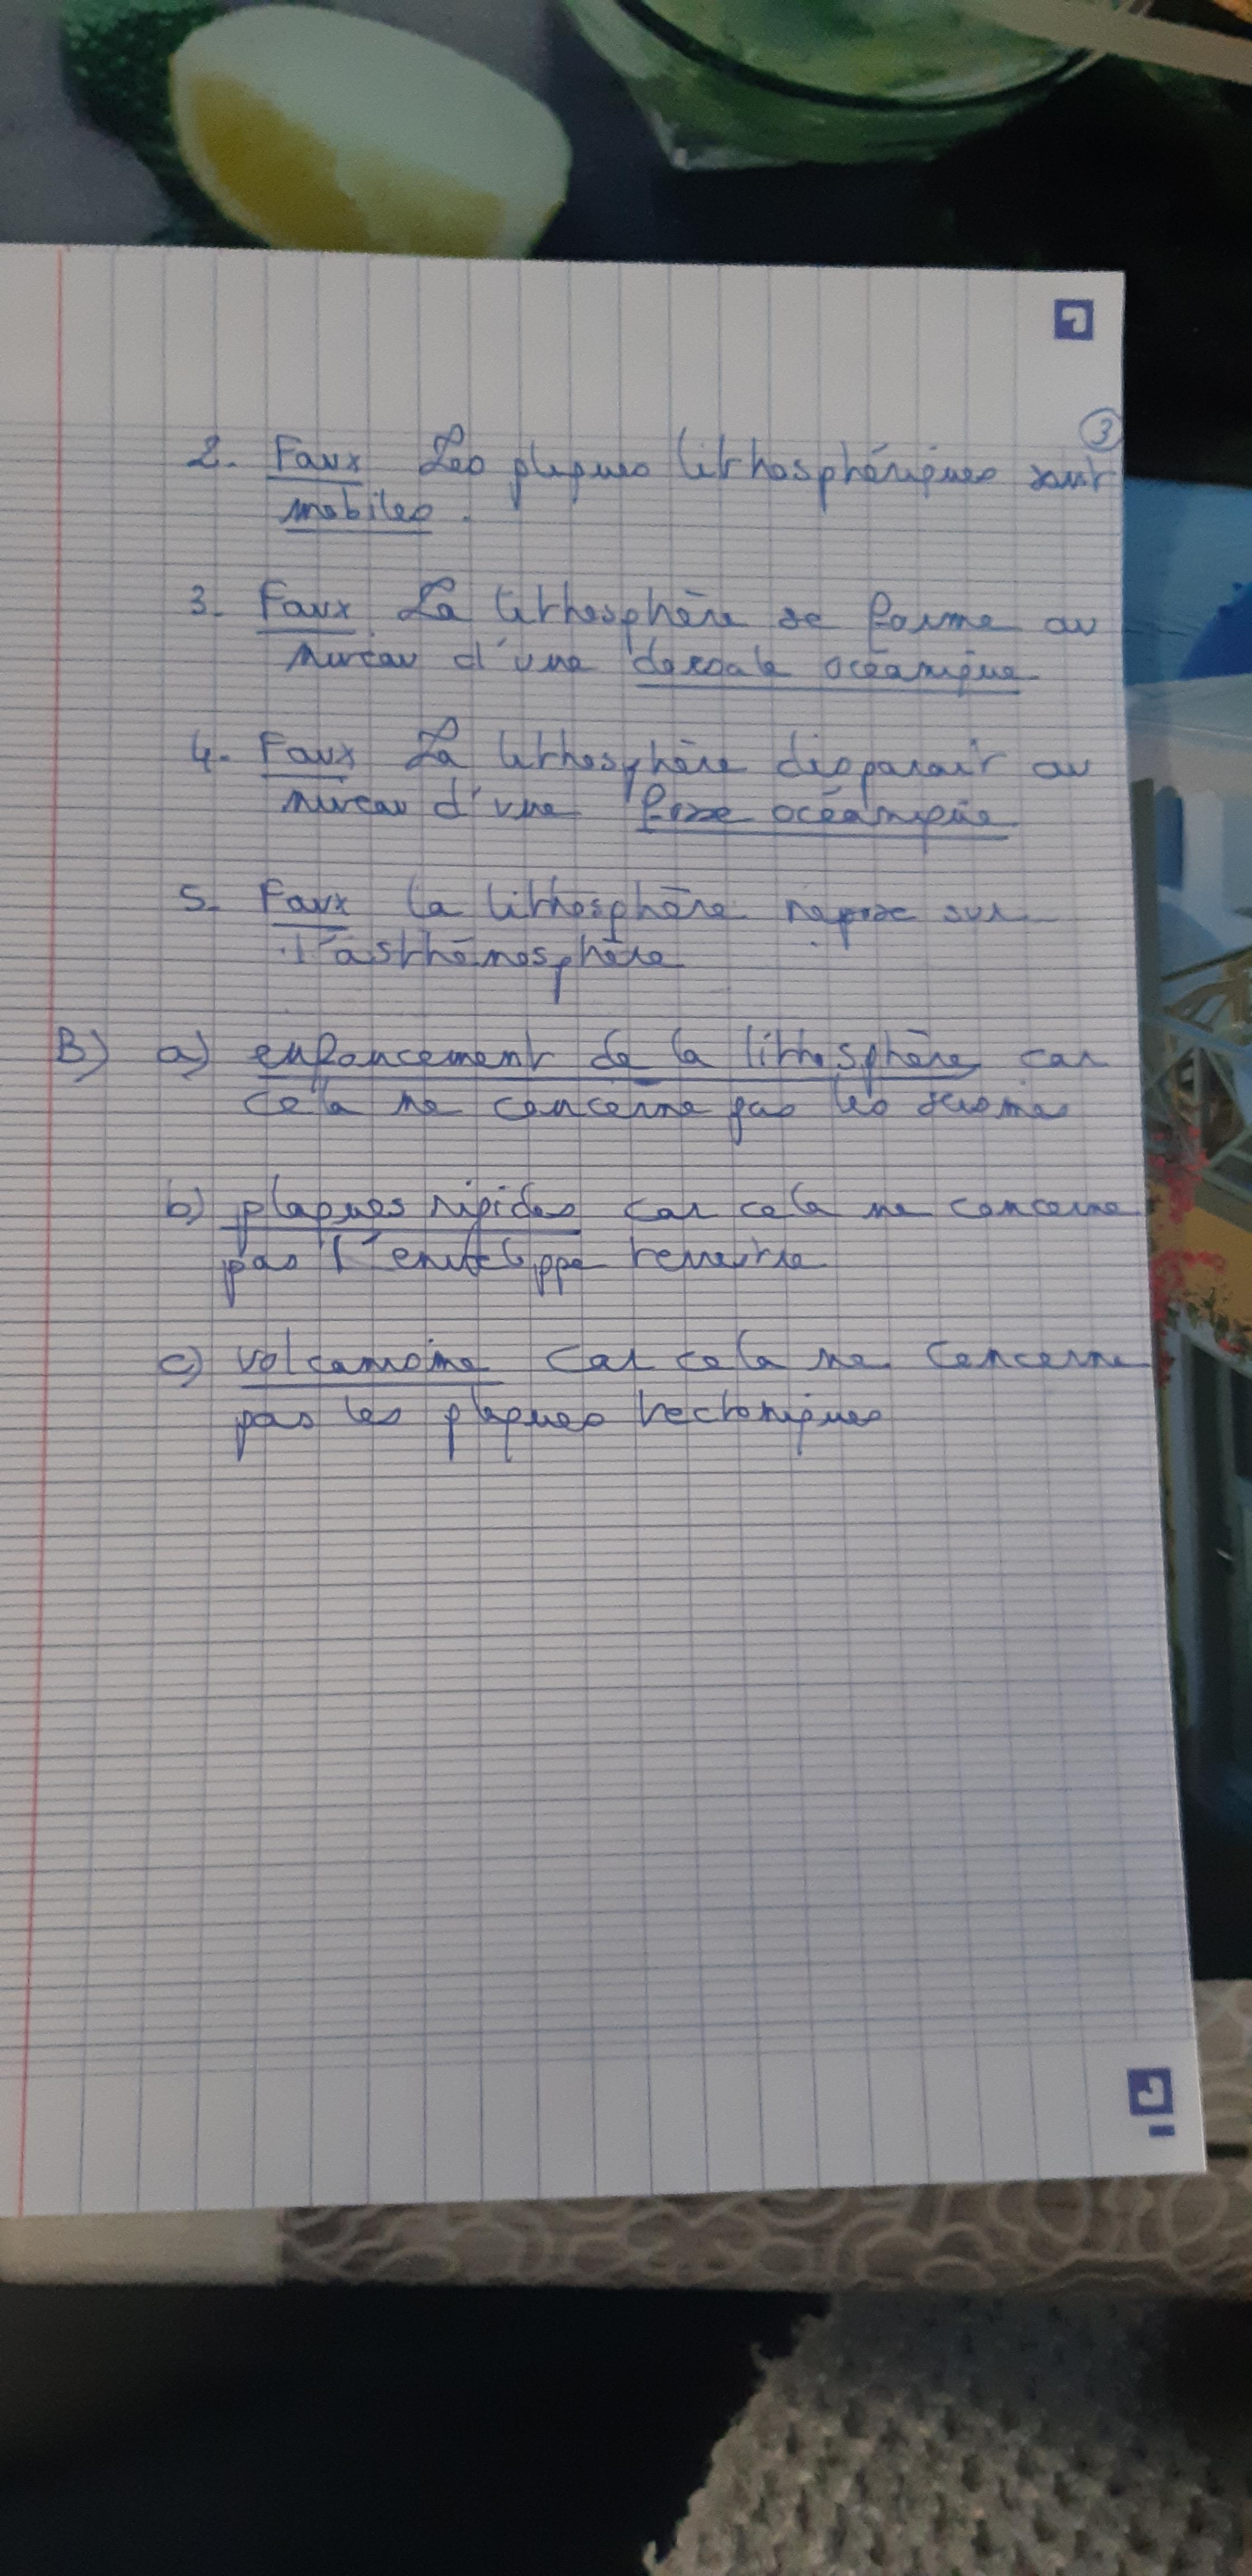 3
2. Faux Les plaques lithosphériques sont
mobiles.
3. Faux. La lithosphère se forme au
niveau d'une dorsale océanique
4. Faux La lithosphère disparait au
niveau d'une fosse océanique
5. Faux la lithosphère repose sur
l'asthénosphère
B) a) enfoncement de la lithosphère car
cela ne concerne pas les seismes
b) plaques rigides car cela ne concerne
pas l'enveloppe terrestre
c) volcanisme car cela ne concerne
pas les plaques tectoniques